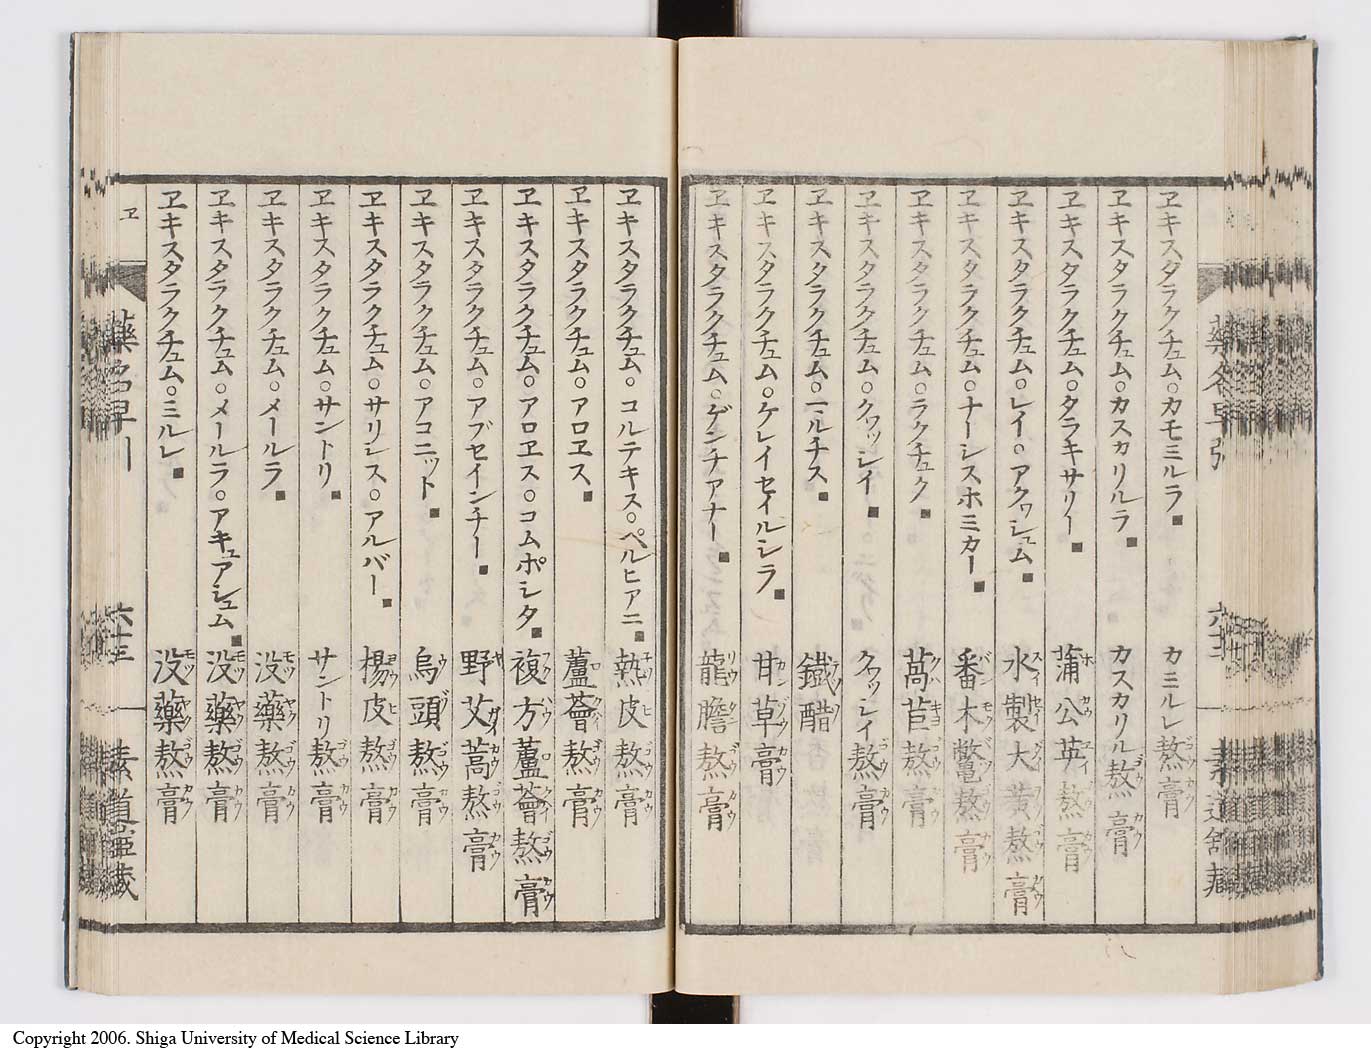 ヱキスタラクチュム○カモミルラ■カミルレ熬膏
ヱキスタラクチュム○カスカリルラ■カスカリル熬膏
ヱキスタラクチュム○タラキサリー■蒲公英熬膏
ヱキスタラクチュム○レイ○アクヮシュム■水製大黄熬膏
ヱキスタラクチュム○ナーシスホミカー■番木鼈熬膏
ヱキスタラクチュム○ラクチュク■萵苣熬膏
ヱキスタラクチュム○クワッシイ■クワッシイ熬膏
ヱキスタラクチュム○一ルチス■鐵醋
ヱキスタラクチュム○ケレイセイルシラ■甘草膏
ヱキスタラクチュム○ゲンチアナー■龍膽熬膏
ヱキスタラクチュム○コルテキス○ペルヒアニ■熱皮熬膏
ヱキスタラクチュム○アロヱス■蘆薈熬膏
ヱキスタラクチュム○アロヱス○コムポシタ■複方蘆薈熬膏
ヱキスタラクチュム○アブセインチー■野艾蒿熬膏
ヱキスタラクチュム○アコニット■烏頭熬膏
ヱキスタラクチュム○サリシス○アルバー■楊皮熬膏
ヱキスタラクチュム○サントリ■サントリ熬膏
ヱキスタラクチュム○メールラ■没藥熬膏
ヱキスタラクチュム○メールラ○アキュアシュム■没藥熬膏
ヱキスタラクチュム○ミルレ■没藥熬膏
ヱ
藥名早
六十三
Copyright 2006. Shiga University of Medical Science Library